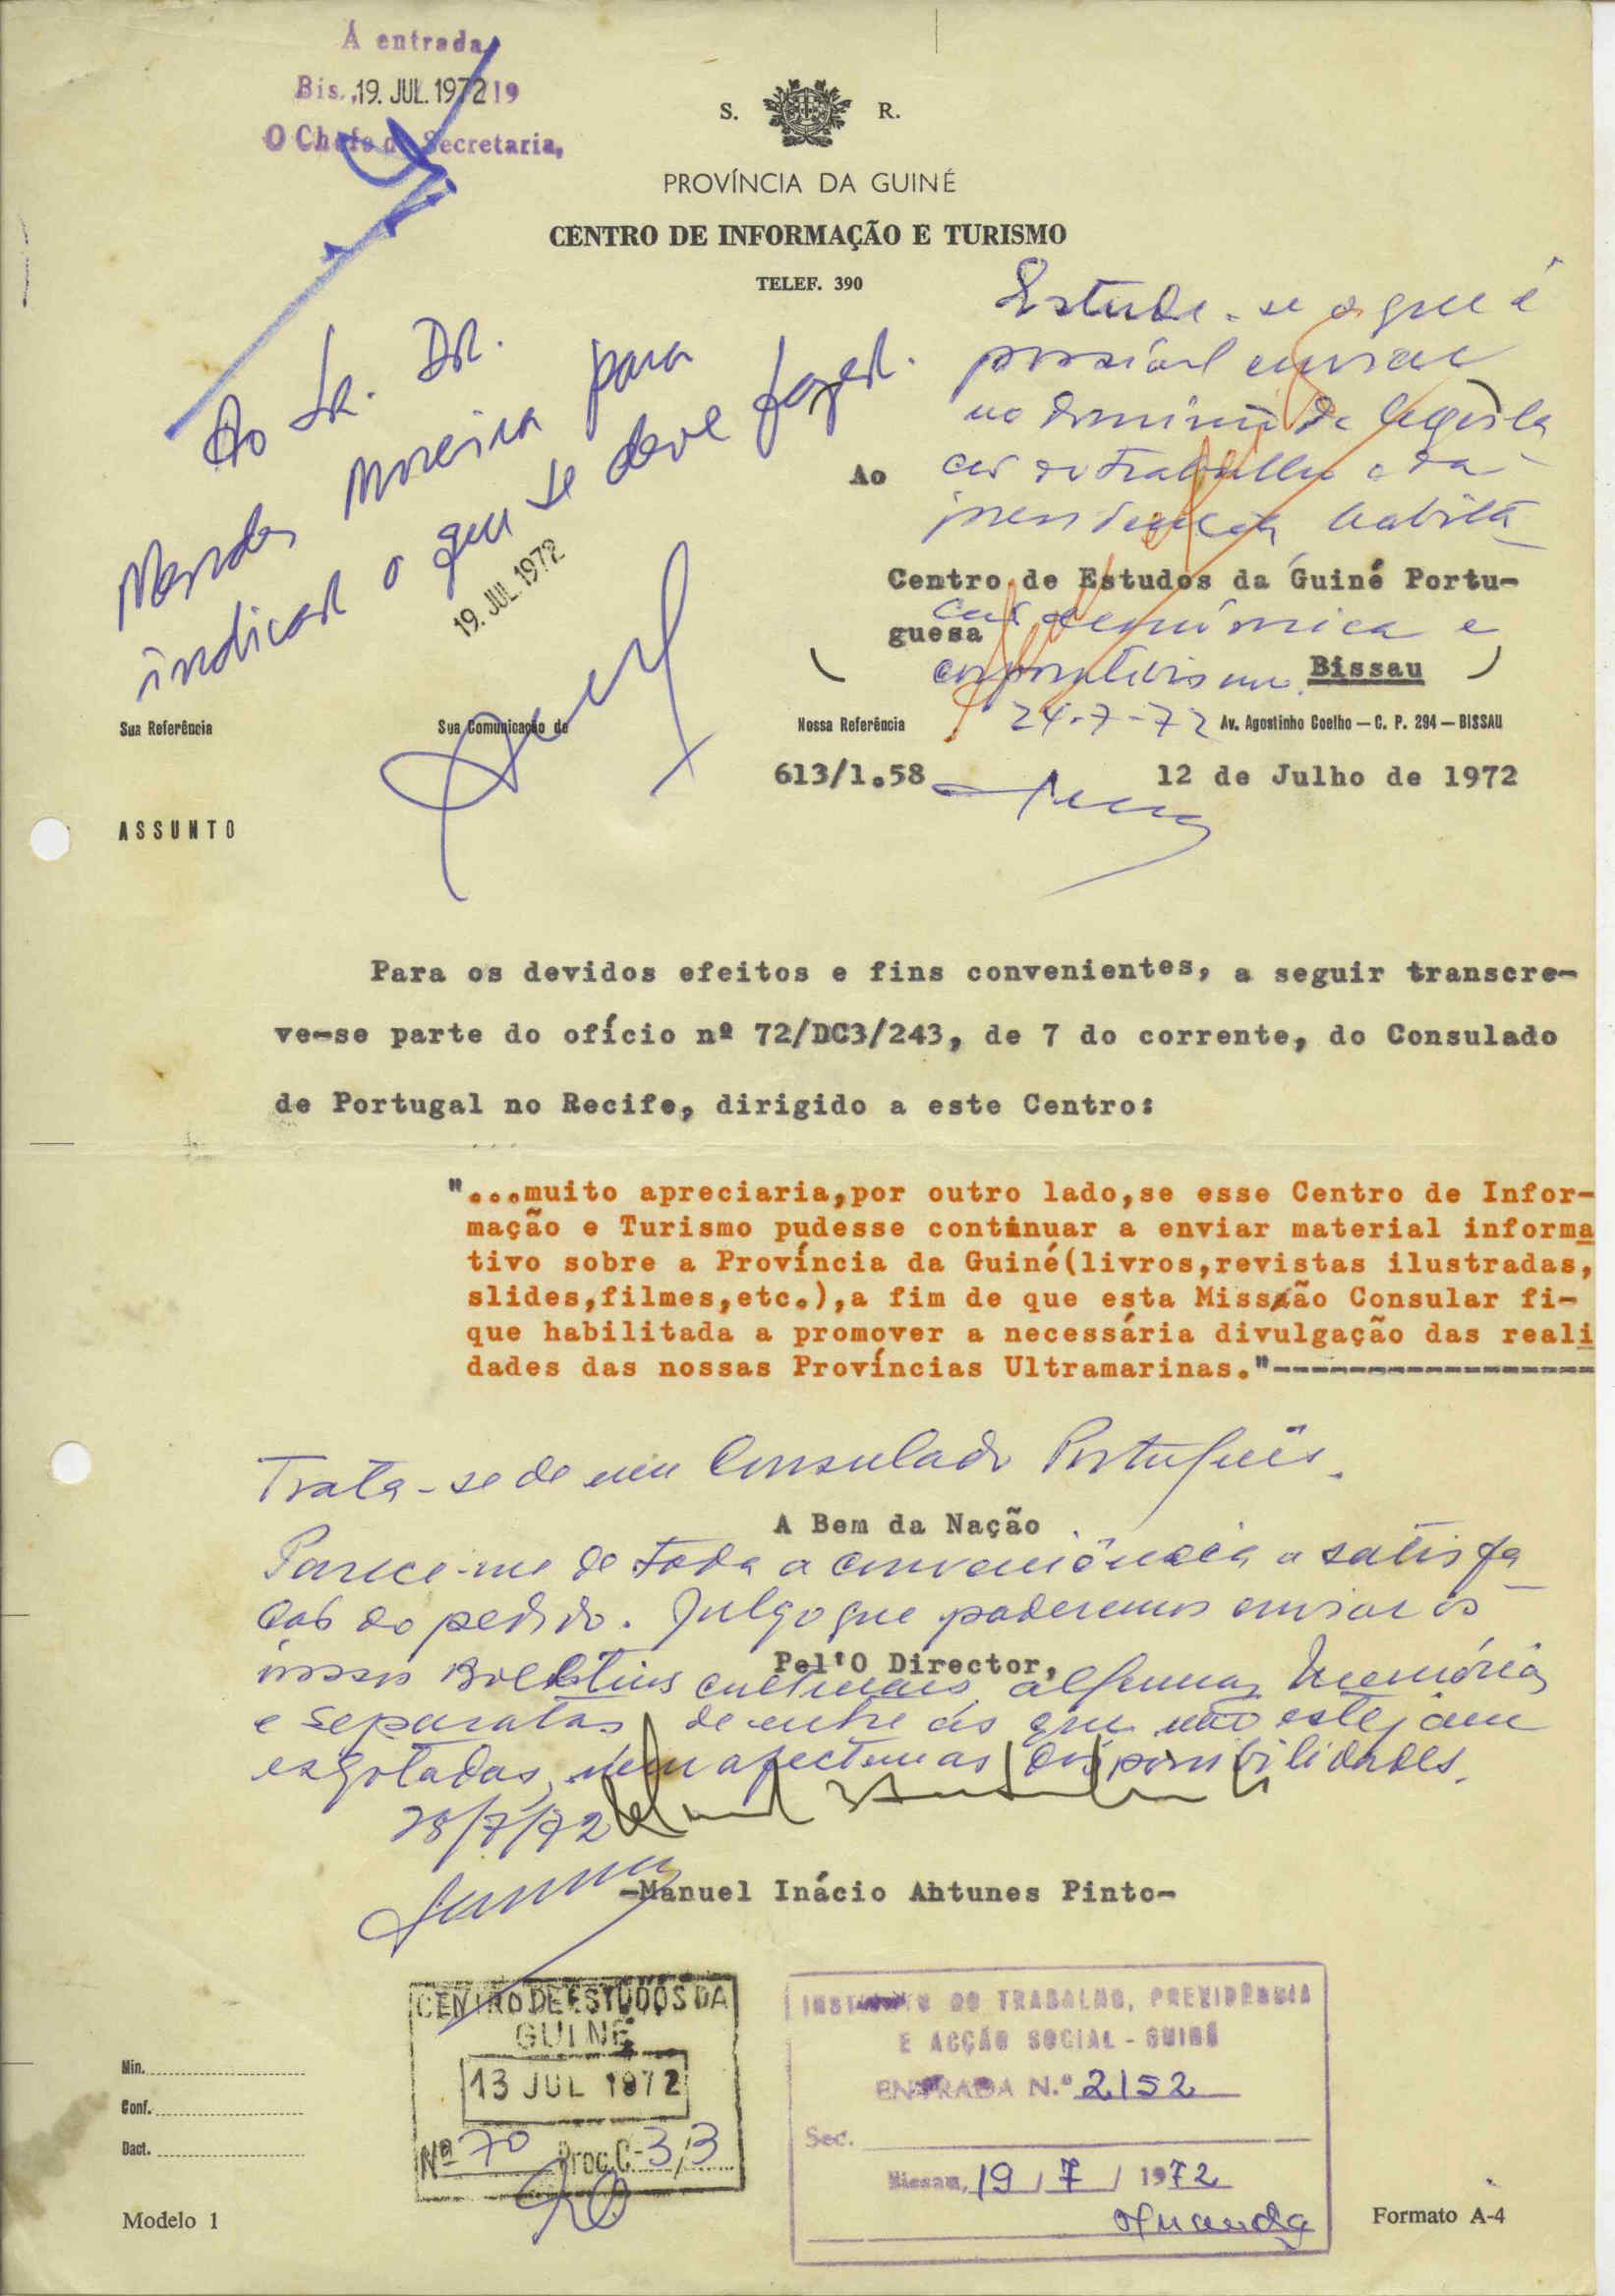 A entrada
Bis., 19. JUL. 1972 19
O Chefe da Secretaria,
S. R.
PROVÍNCIA DA GUINÉ
CENTRO DE INFORMAÇÃO E TURISMO
TELEF. 390
Ao Sr. DR.
Mendes Moreira para
indicar o que se deve fazer.
19. JUL. 1972
Estude-se o que é
possível enviar
no domínio da legisla
ção do trabalho e da
previdência, habita
Ao
Centro de Estudos da Guiné Portu-
guesa
Bissau
ção económica e
corporativismo.
24-7-72
Sua Referência
Sua Comunicação de
Nossa Referência
Av. Agostinho Coelho — C. P. 294 — BISSAU
613/1.58
12 de Julho de 1972
ASSUNTO
Para os devidos efeitos e fins convenientes, a seguir transcre-
ve-se parte do ofício nº 72/DC3/243, de 7 do corrente, do Consulado
de Portugal no Recife, dirigido a este Centro:
"...muito apreciaria,por outro lado,se esse Centro de Infor-
mação e Turismo pudesse continuar a enviar material informa
tivo sobre a Província da Guiné(livros,revistas ilustradas,
slides,filmes,etc.),a fim de que esta Missão Consular fi-
que habilitada a promover a necessária divulgação das reali
dades das nossas Províncias Ultramarinas."-----------------
Trata-se de um Consulado Português.
A Bem da Nação
Parece-me de toda a conveniência a satisfa
ção do pedido. Julgo que poderemos enviar os
Pel'O Director,
nossos Boletins culturais, algumas Memórias
e separatas, de entre as que não estejam
esgotadas, nem afectem as disponibilidades.
28/7/72
-Manuel Inácio Antunes Pinto-
CENTRO DE ESTUDOS DA
GUINÉ
13 JUL 1972
Nº 70 Proc. C-3,3
INSTITUTO DO TRABALHO, PREVIDÊNCIA
E ACÇÃO SOCIAL - GUINÉ
ENTRADA N.º 2152
Sec.
Bissau, 19 / 7 / 1972
Min.
Conf.
Dact.
Modelo 1
Formato A-4